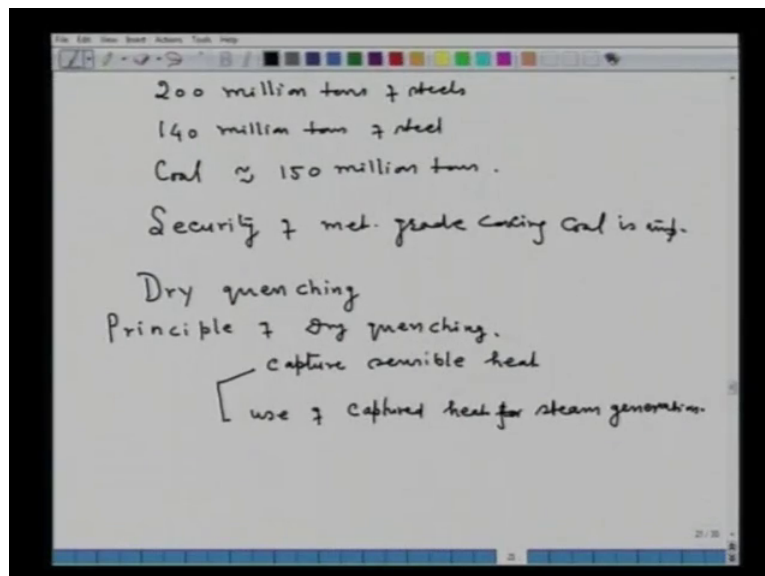 File Edit View Insert Actions Tools Help
200 million tons of steels
140 million tons of steel
Coal ≈ 150 million tons.
Security of met. grade coking coal is imp.
Dry quenching
Principle of Dry quenching.
capture sensible heat
use of captured heat for steam generation.